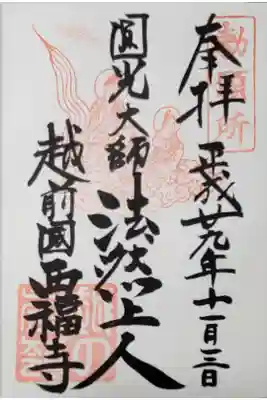 勅願所
奉拝 平成廿九年十一月三日
圓光大師 法然上人
越前國 西福寺